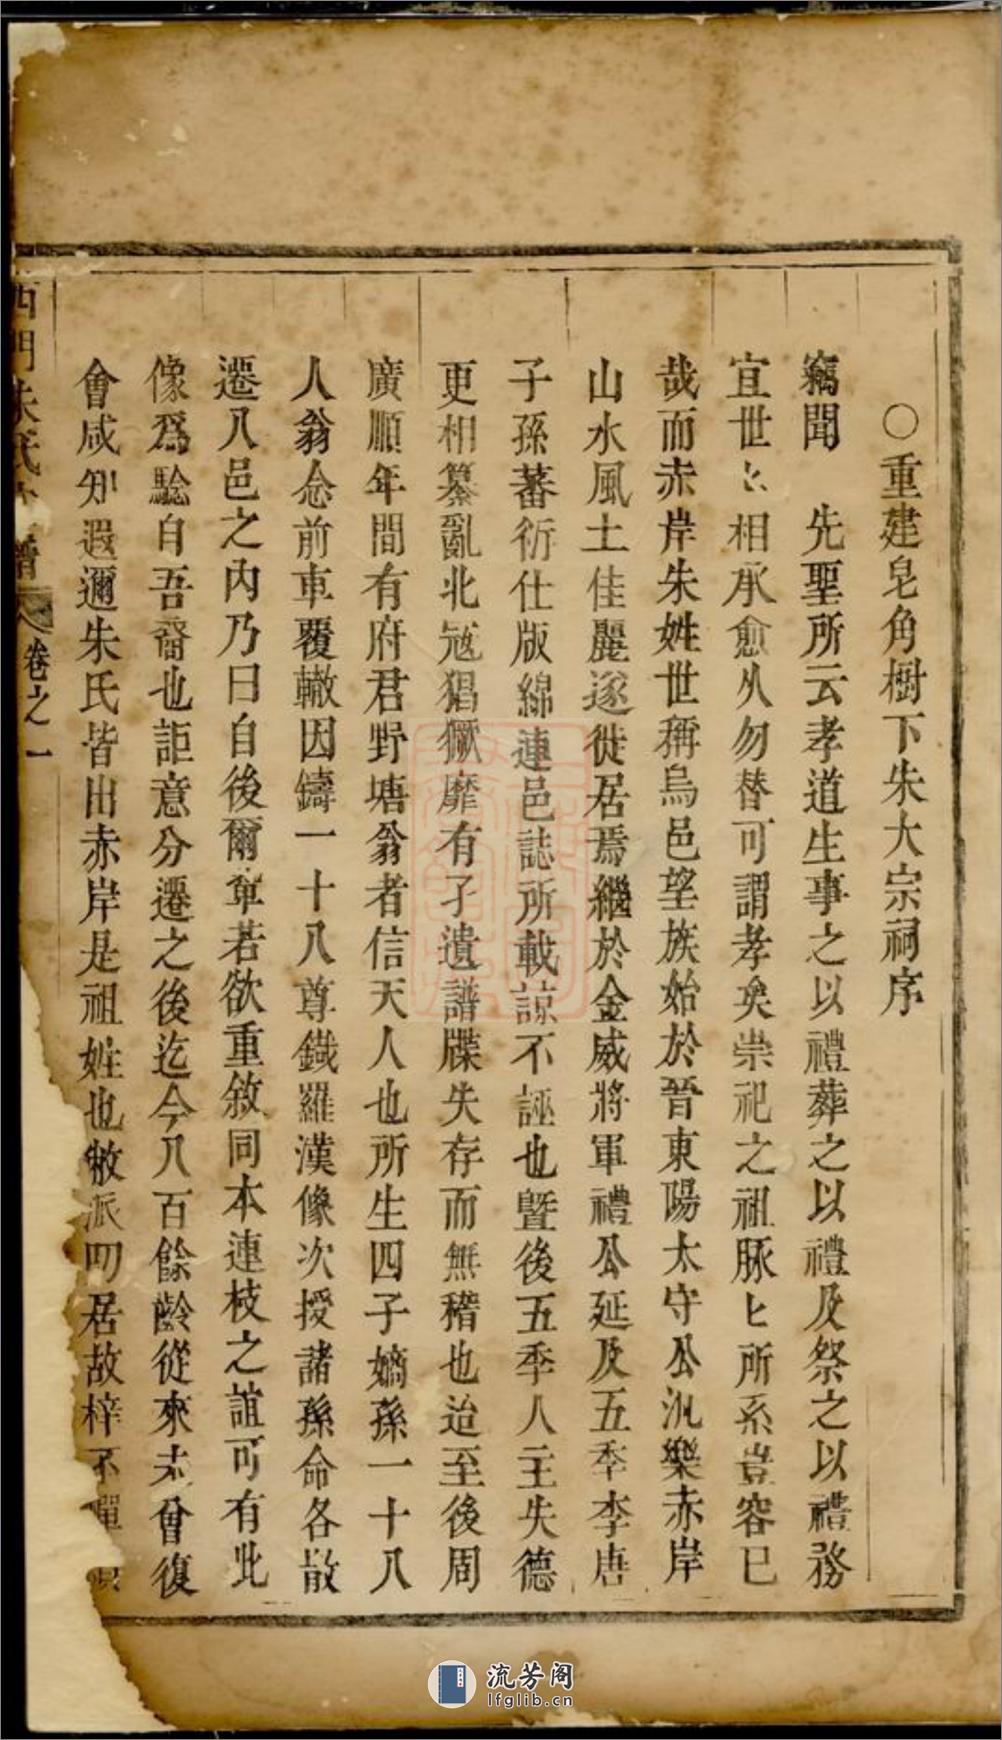 ○重建皂角樹下朱大宗祠序
竊聞 先聖所云孝道生事之以禮葬之以禮及祭之以禮務
宜世〻相承愈久勿替可謂孝矣崇祀之祖脉匕所系豈容已
哉而赤岸朱姓世稱烏邑望族始於晉東陽太守公汎樂赤岸
山水風土佳麗遂徙居焉繼於金威將軍禮公延及五季李唐
子孫蕃衍仕版綿連邑誌所載諒不誣也暨後五季人主失德
更相篡亂北冦猖獗靡有孑遺譜牒失存而無稽也迨至後周
廣順年間有府君野塘翁者信天人也所生四子嫡孫一十八
人翁念前車覆轍因鑄一十八尊鐵羅漢像次授諸孫命各散
遷八邑之內乃曰自後爾軰若欲重敘同本連枝之誼可有此
像爲騐自吾裔也詎意分遷之後迄今八百餘齡從來未曾復
會咸知遐邇朱氏皆出赤岸是祖姓也敝派叨居故梓不憚
西門朱氏 譜 卷之一
流芳阁
lfglib.cn